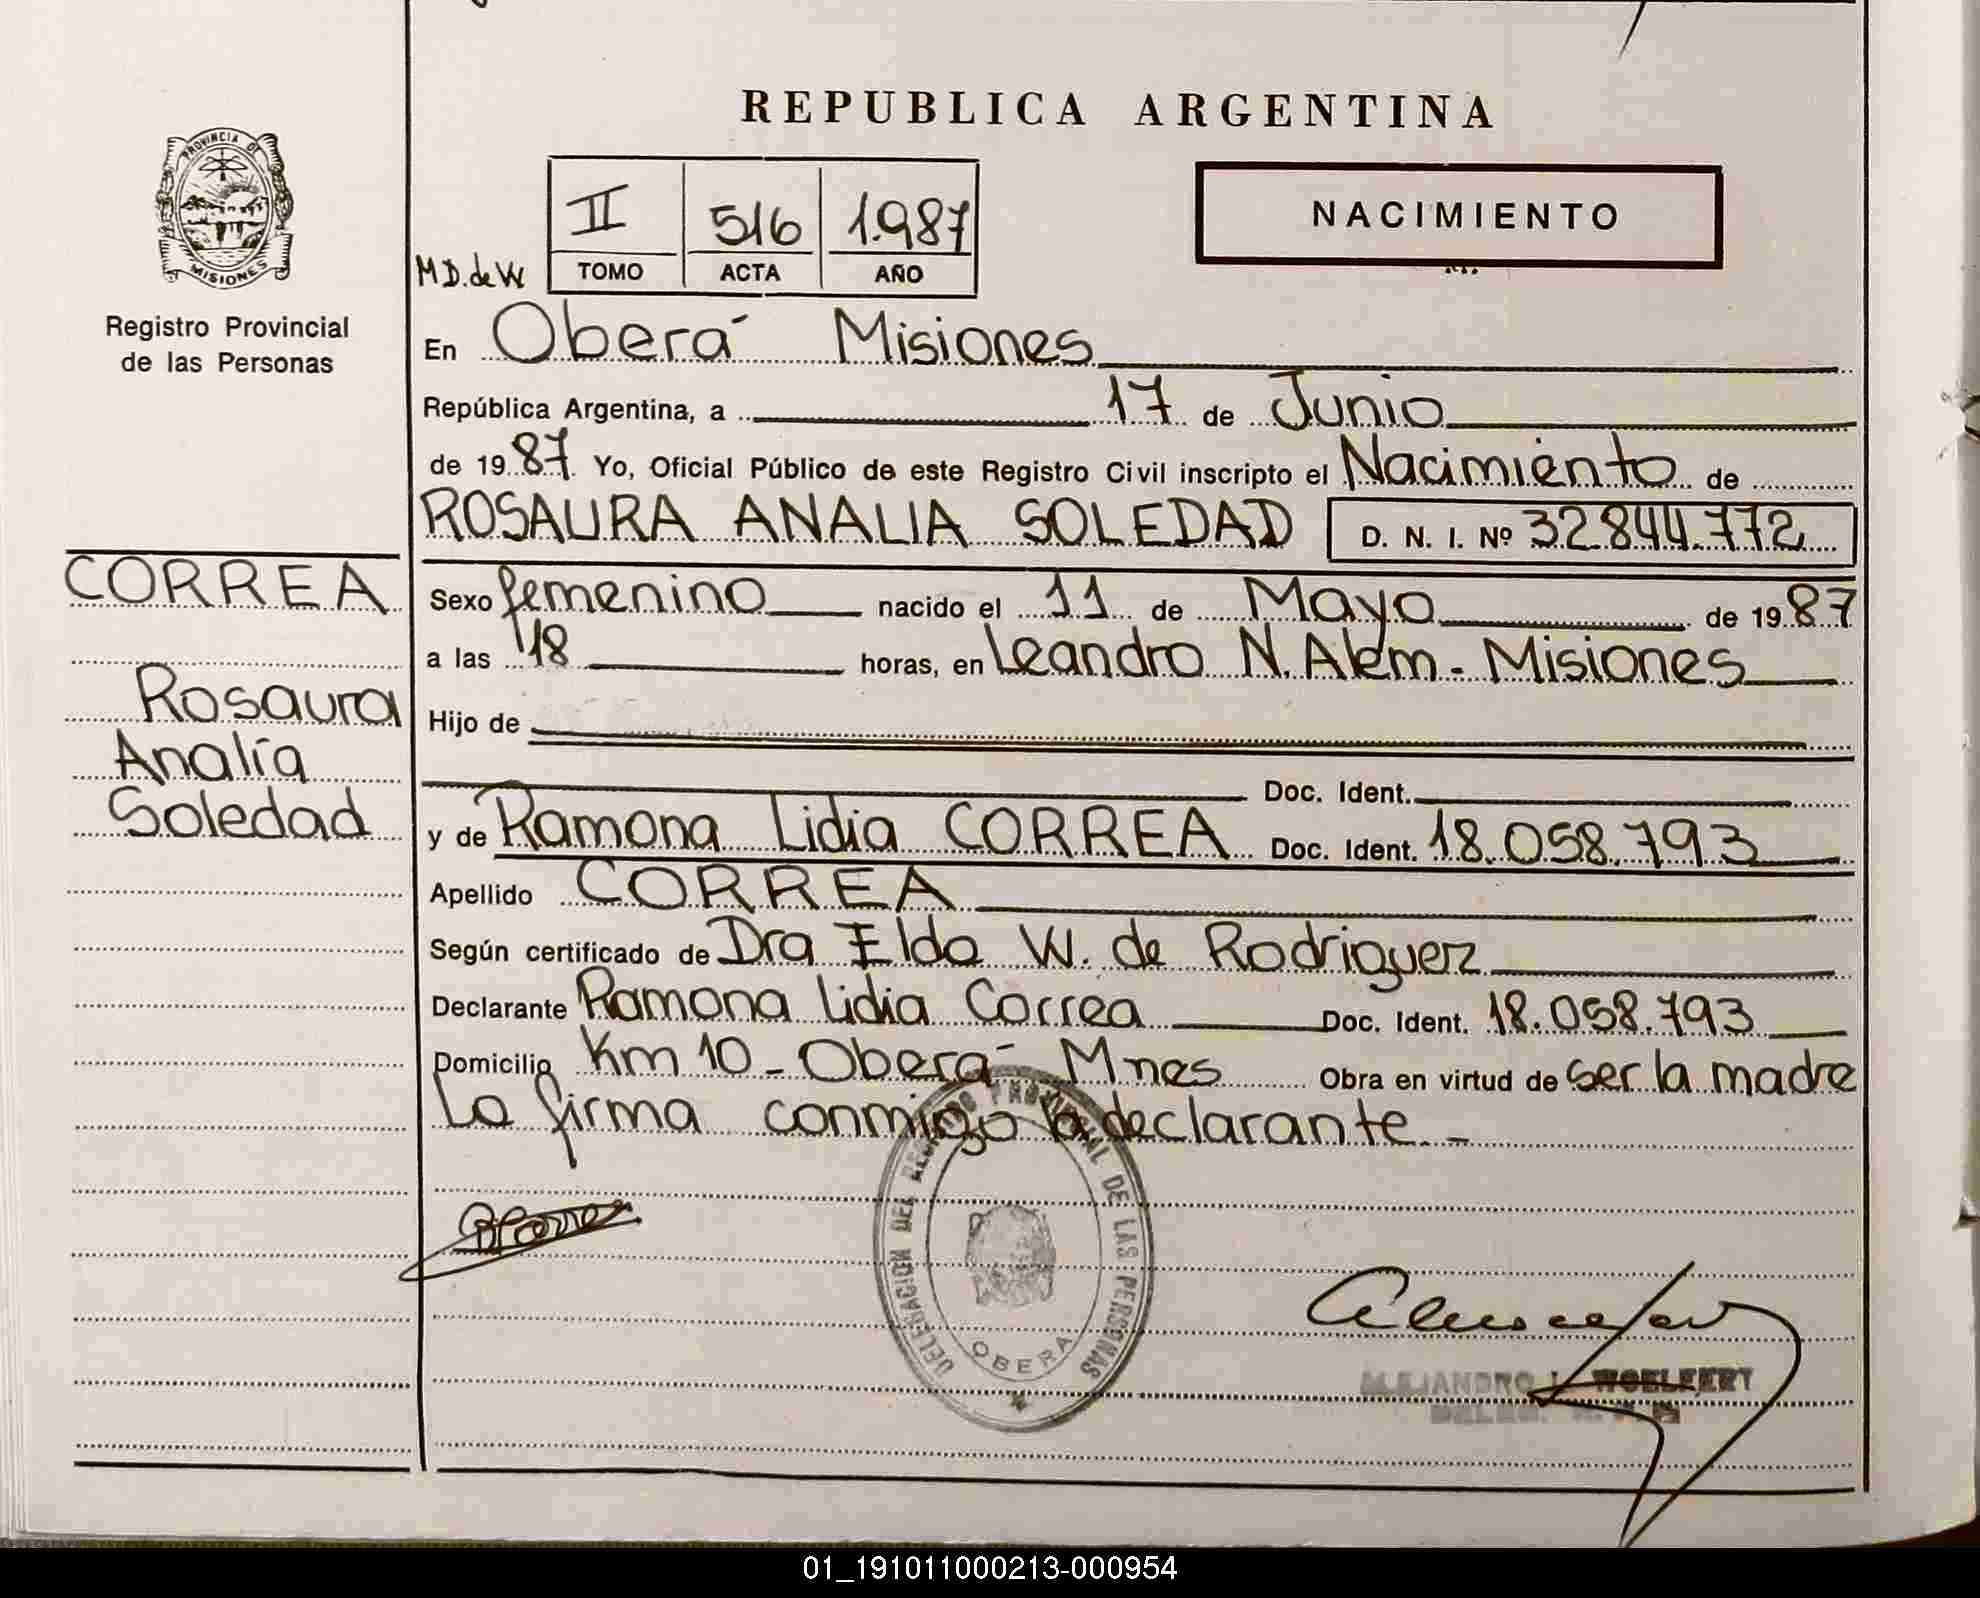 REPUBLICA ARGENTINA
PROVINCIA DE
MISIONES
Registro Provincial
de las Personas
II 516 1.987
TOMO ACTA AÑO
NACIMIENTO
M D. de W
En Oberá Misiones
República Argentina, a 17 de Junio
de 19 87 Yo, Oficial Público de este Registro Civil inscripto el Nacimiento de
ROSAURA ANALIA SOLEDAD D. N. I. Nº 32.844.772
CORREA
Rosaura
Analía
Soledad
Sexo femenino nacido el 11 de Mayo de 19 87
a las 18 horas, en Leandro N. Alem - Misiones
Hijo de
Doc. Ident.
y de Ramona Lidia CORREA Doc. Ident. 18.058.793
Apellido CORREA
Según certificado de Dra Elda W. de Rodriguez
Declarante Ramona Lidia Correa Doc. Ident. 18.058.793
Domicilio Km 10 - Oberá - Mnes Obra en virtud de ser la madre
La firma conmigo la declarante. -
DELEGACION DEL REGISTRO PROVINCIAL DE LAS PERSONAS
OBERA
ALEJANDRO L. WOELFERT
01_191011000213-000954